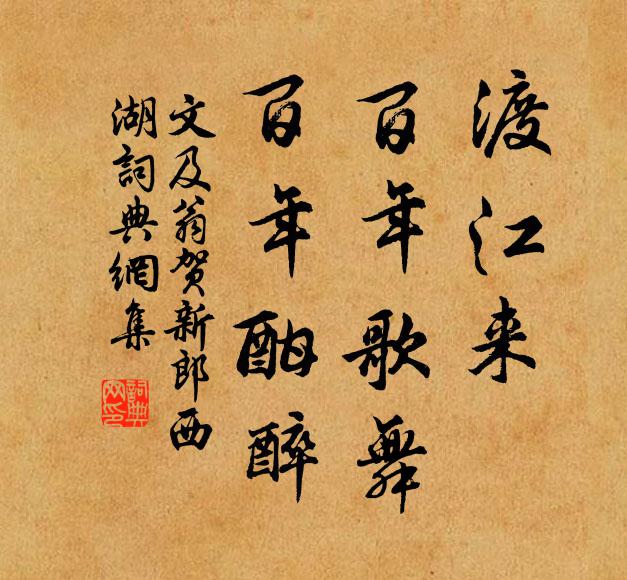 渡江来
百年歌舞
百年酣醉
文及翁贺新郎西
湖詞典網集
詞典
网印